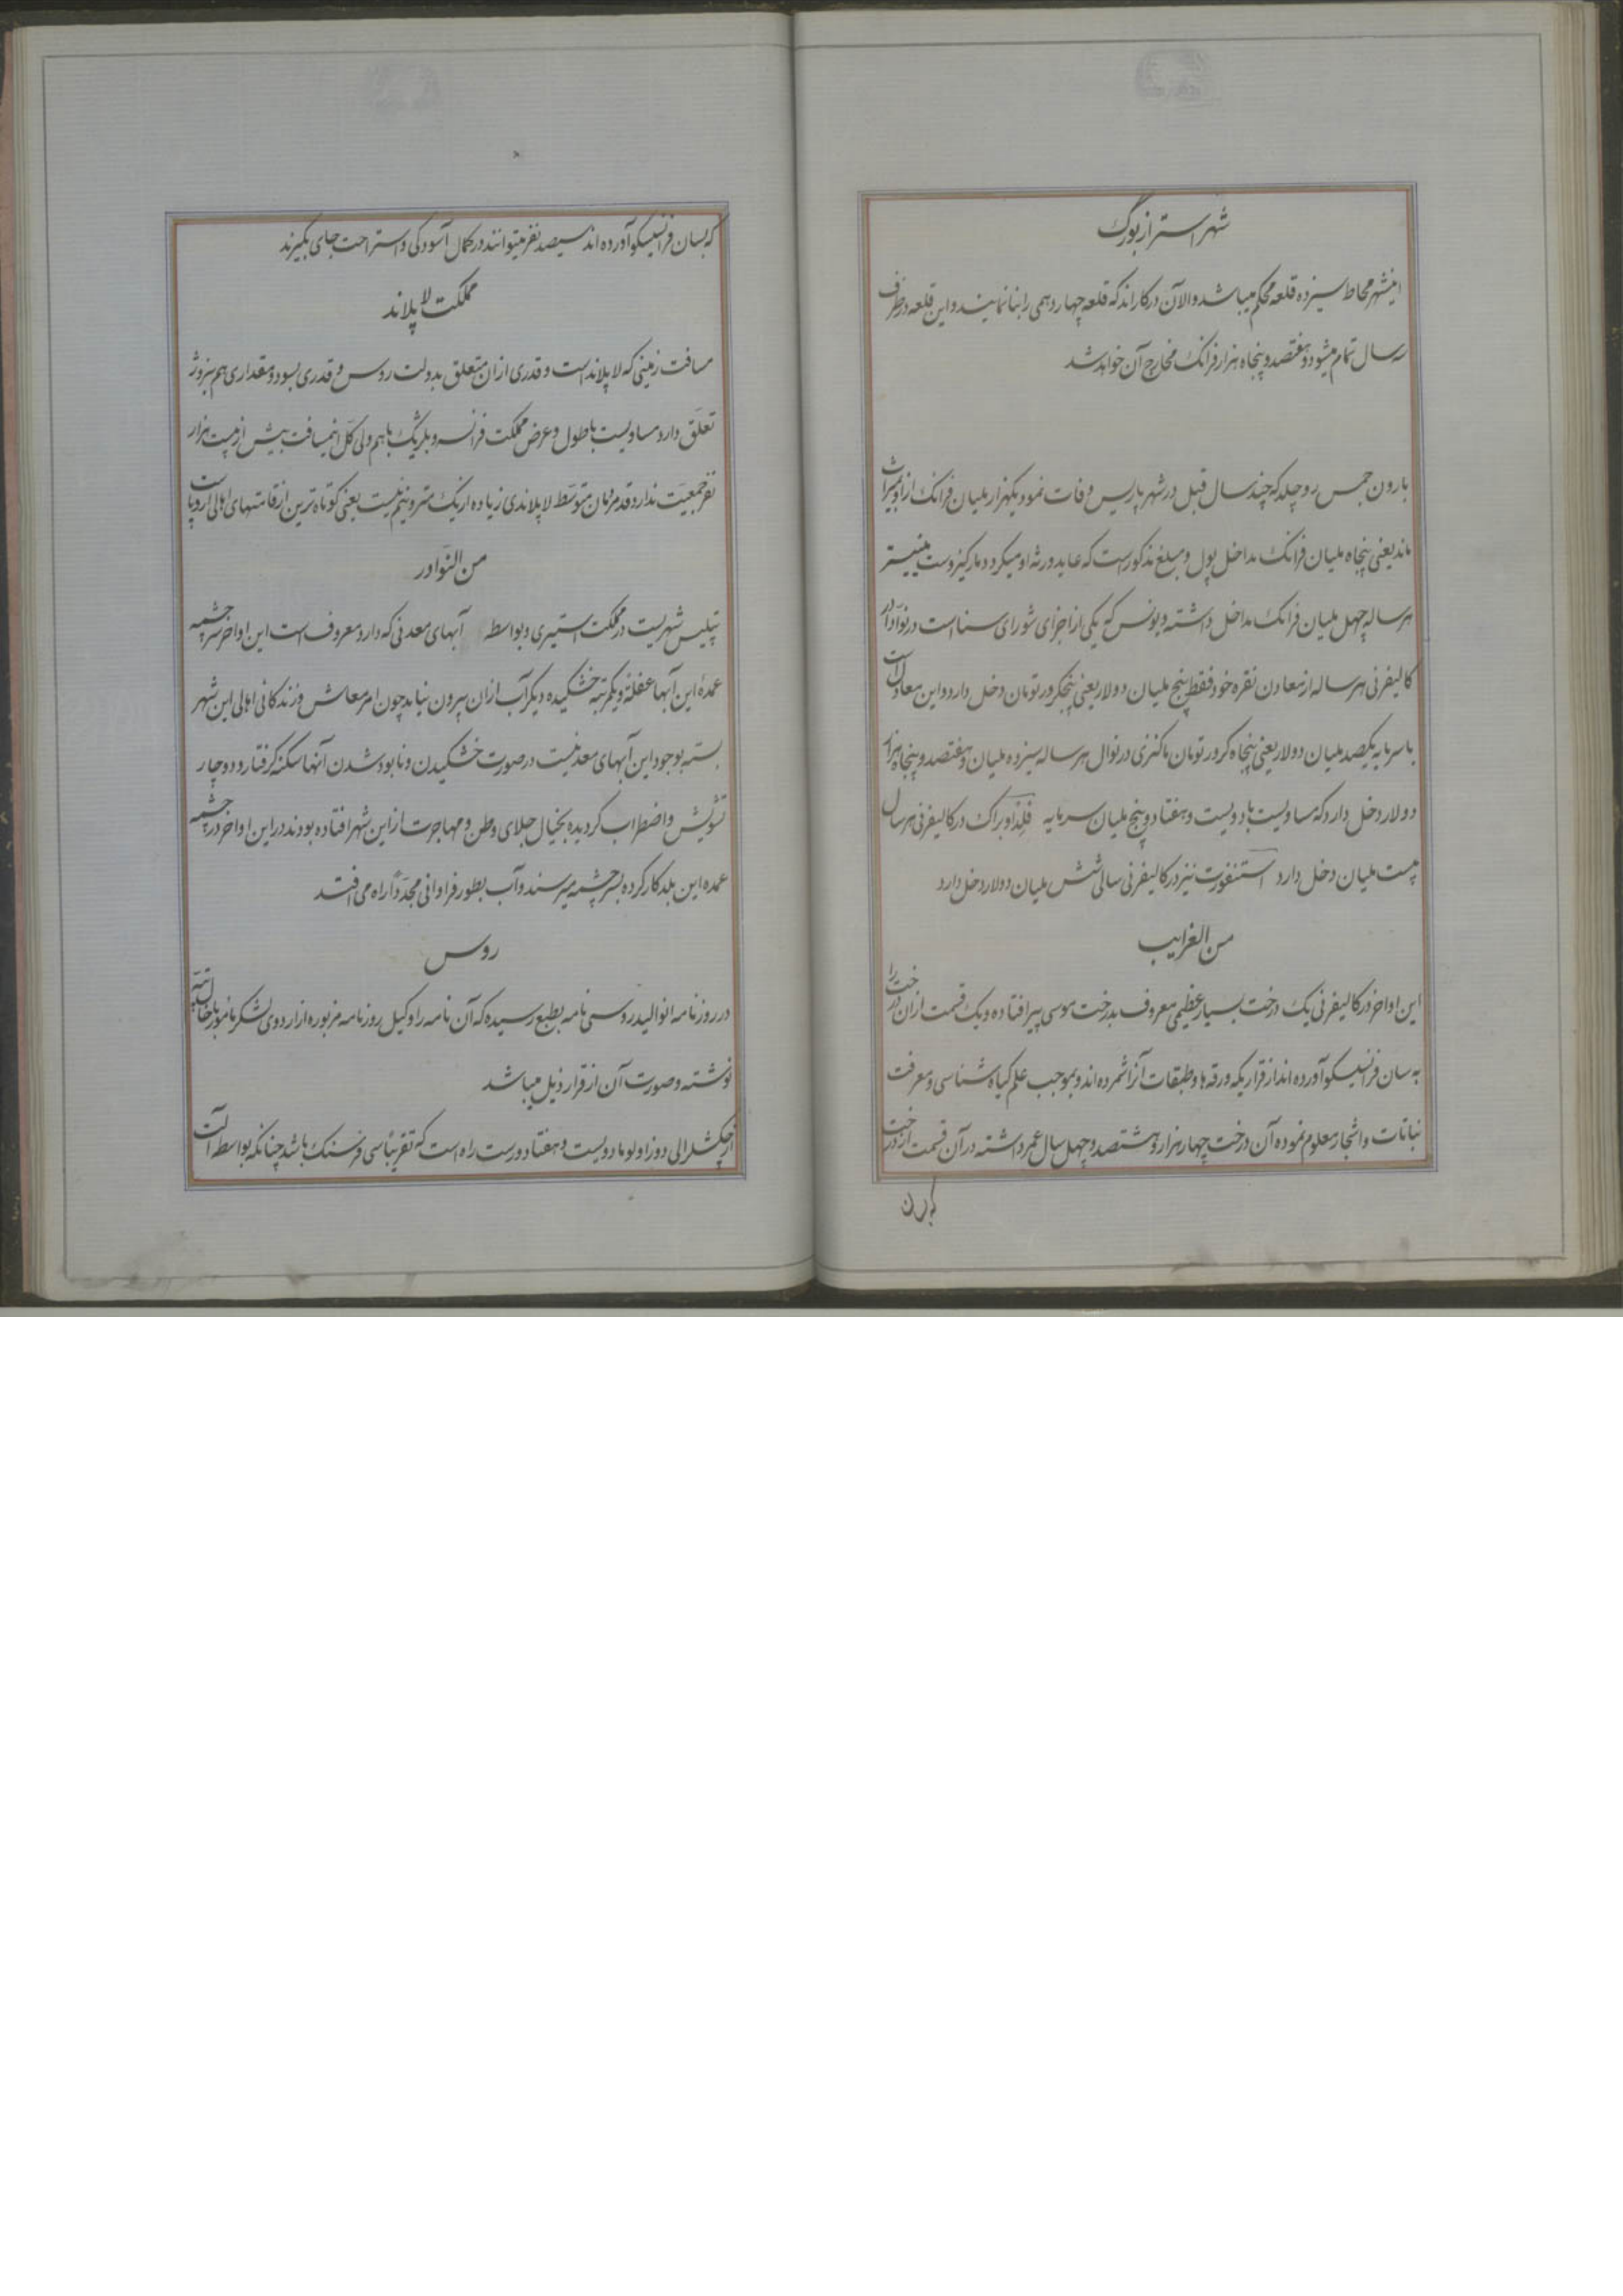 شهر استرازبورگ
اینشهر محاط سیزده قلعه محکم میباشد والآن درکاراند که قلعه چهاردهمی را بنا نمایند و این قلعه در ظرف
سه سال تمام میشود و هفتصد و پنجاه هزار فرانک مخارج آن خواهد شد
بارون جمس روچلد که چند سال قبل در شهر پاریس وفات نمود یکهزار ملیان فرانک از او بمیراث
ماند یعنی پنجاه ملیان فرانک مداخل پول و مبلغ مذکور است که عاید ورثه او میگردد مارکیز وست مینیستر
هرساله چهل ملیان فرانک مداخل داشته و یونس که یکی از اجزای شورای سنا است در نوادا در
کالیفرنی هرساله از معادن نقره خود فقط پنج ملیان دولار یعنی پنجکرور تومان دخل دارد و این معادل است
با سرمایه یکصد ملیان دولار یعنی پنجاه کرور تومان ماکنزی در نوال هرساله سیزده ملیان و هفتصد و پنجاه هزار
دولار دخل دارد که مساویست با دویست و هفتاد و پنج ملیان سرمایه فلداوبراک در کالیفرنی هرسال
بیست ملیان دخل دارد استنفورت نیز در کالیفرنی سالی شش ملیان دولار دخل دارد
من الغرایب
این اواخر در کالیفرنی یک درخت بسیار عظیمی معروف بدرخت موسی پیر افتاده و یک قسمت از آن درخت را
به سان فرانسیسکو آورده اند از قراریکه ورقه ها و طبقات آنرا شمرده اند و بموجب علم گیاه شناسی و معرفت
نباتات و اشجار معلوم نموده آن درخت چهار هزار و هشتصد و چهل سال عمر داشته در آن قسمت از درخت
که بسان
که بسان فرانسیسکو آورده اند سیصد نفر میتوانند در کمال آسودگی و استراحت جای بگیرند
مملکت لاپلاند
مسافت زمینی که لاپلاند است و قدری از آن متعلق بدولت روس و قدری بسود و مقداری هم بنروژ
تعلق دارد مساویست با طول و عرض مملکت فرانسه و بلژیک باهم ولی کل اینمسافت بیش از بیست هزار
نفر جمعیت ندارد و قد مردمان متوسط لاپلاندی زیاده از یک متر و نیم نیست یعنی کوتاه ترین از قامتهای اهالی اروپا است
من النوادر
تپلیس شهریست در مملکت استیری و بواسطه آبهای معدنی که دارد معروف است این اواخر سرچشمه
عمده این آبها غفلة و یکمرتبه خشکیده دیگر آب از آن بیرون نیاید چون امر معاش و زندکانی اهالی این شهر
بسته بوجود این آبهای معدنیست در صورت خشکیدن و نابود شدن آنها سکنه گرفتار و دوچار
تشویش و اضطراب کردیده بخیال جلای وطن و مهاجرت از این شهر افتاده بودند در این اواخر در چشمه
عمده این بلد کار کرده بسرچشمه میرسند و آب بطور فراوانی مجدداً راه می افتد
روس
در روزنامه انوالید روسی نامه بطبع رسیده که آن نامه را وکیل روزنامه مزبوره از اردوی لشکر مامور باخال تپه
نوشته و صورت آن از قرار ذیل میباشد
از چکشلر الی دوزاولوما دویست و هفتاد ورست راه است که تقریباً سی فرسنک باشد چنانکه بواسطه آلت